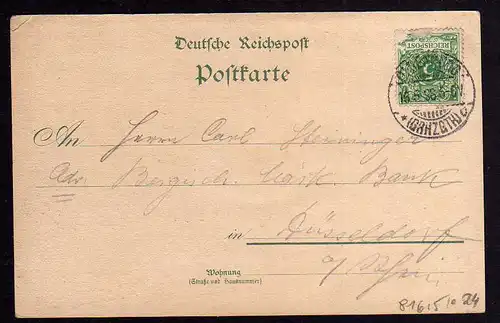 Deutsche Reichspost
Postkarte
REICHSPOST
5
(GRHZGTH)
An Herrn Carl Steininger
Adr. Bergisch. Märk. Bank
in Düsseldorf
a/Rhein
Wohnung
(Straße und Hausnummer)
816,5 10 24